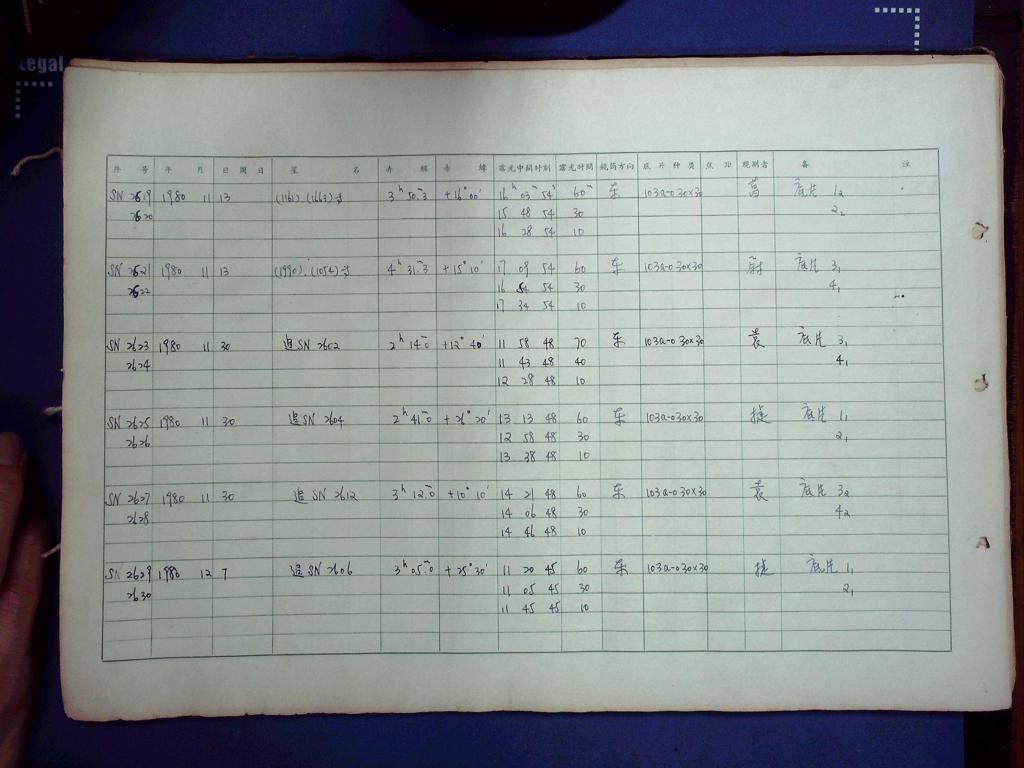 Legal
件 号 年 月 日 期 日 星 名 赤 經 赤 緯 露光中間時刻 露光时間 鏡筒方向 底片种类 焦距 观测者 备 註
SN 2619 1980 11 13 (1161).(1663) 3ʰ 50ᵐ.3 +16°00′ 16ʰ 03ᵐ 54ˢ 60ᵐ 东 103a-0 30×30 底片 1₂
2620 15 48 54 30 2₂
16 28 54 10
SN 2621 1980 11 13 (1990).(1054) 4ʰ 31ᵐ.3 +15°10′ 17 09 54 60 东 103a-0 30×30 底片 3₁
2622 16 54 54 30 4₁
17 34 54 10
SN 2623 1980 11 30 追SN 2602 2ʰ 14ᵐ.0 +12°40′ 11 58 48 70 东 103a-0 30×30 袁 底片 3₁
2624 11 43 48 40 4₁
12 28 48 10
SN 2625 1980 11 30 追SN 2604 2ʰ 41ᵐ.0 +26°20′ 13 13 48 60 东 103a-0 30×30 捷 底片 1₁
2626 12 58 48 30 2₁
13 38 48 10
SN 2627 1980 11 30 追SN 2612 3ʰ 12ᵐ.0 +10°10′ 14 21 48 60 东 103a-0 30×30 袁 底片 3₂
2628 14 06 48 30 4₂
14 46 48 10
SN 2629 1980 12 7 追SN 2606 3ʰ 05ᵐ.0 +25°30′ 11 20 45 60 东 103a-0 30×30 捷 底片 1₁
2630 11 05 45 30 2₁
11 45 45 10